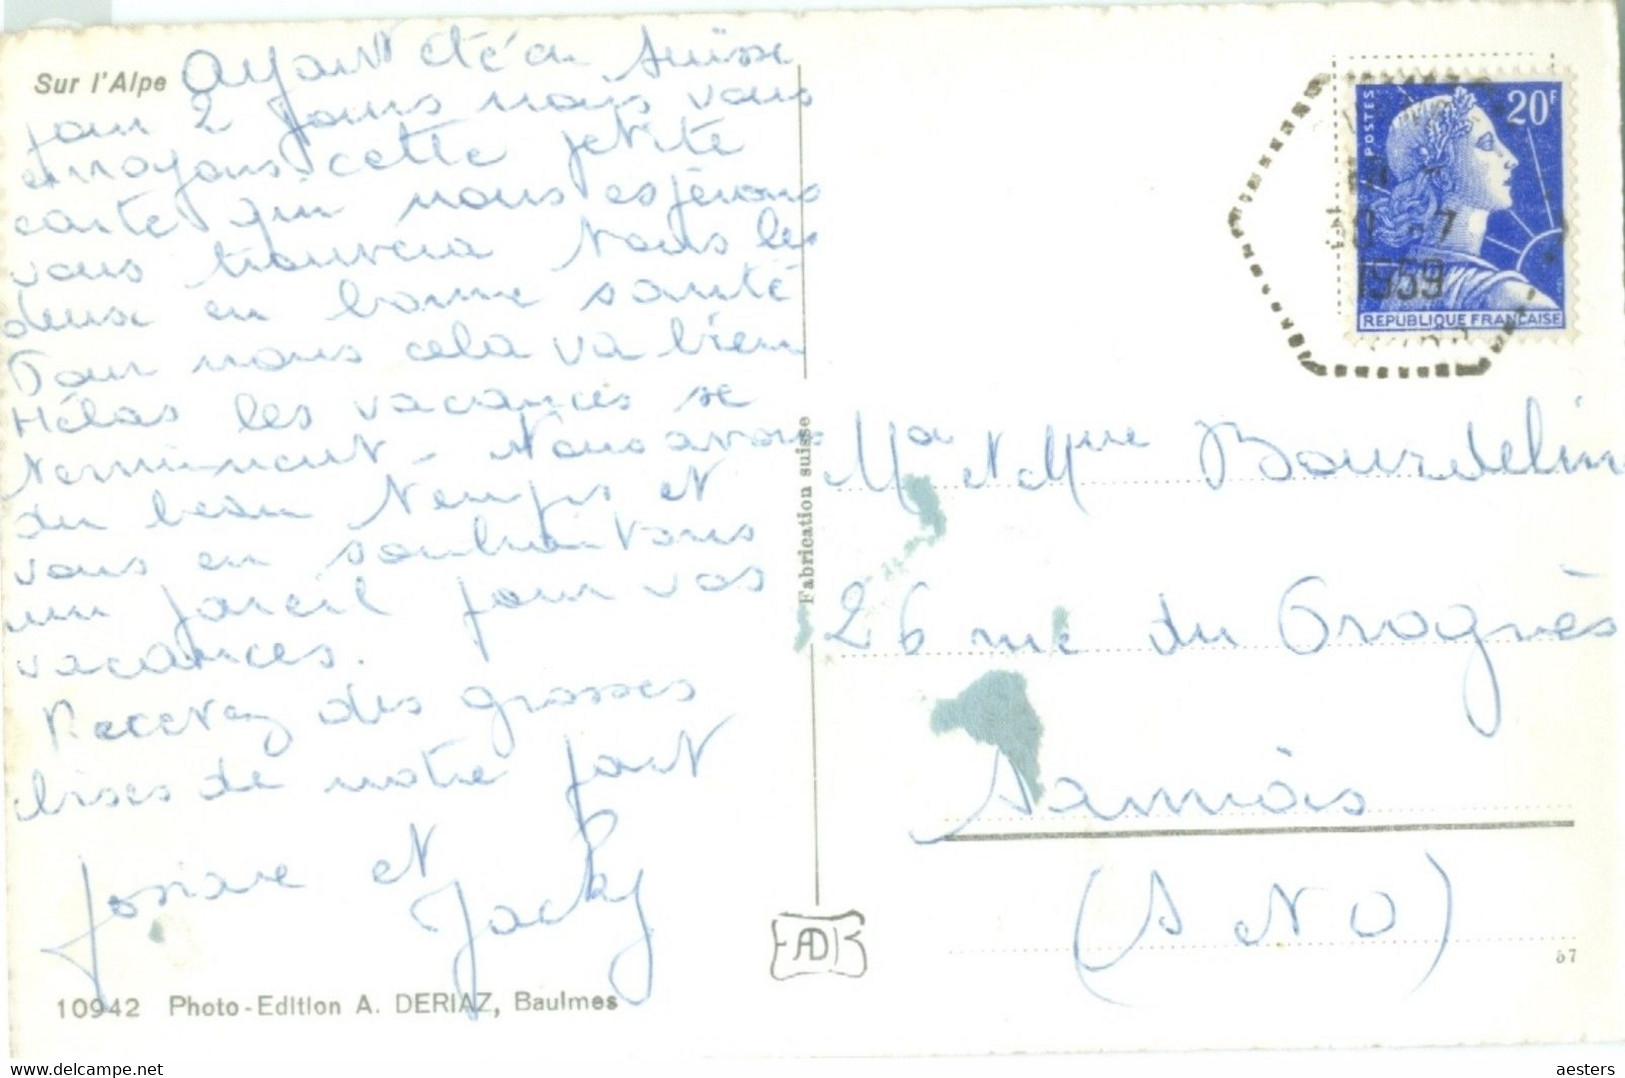 Sur l'Alpe Ayant été en Suisse
pour 2 jours nous vous
envoyons cette petite
carte qui nous espérons
vous trouvera tous les
deux en bonne santé
Pour nous cela va bien
Hélas les vacances se
terminent - Nous avons
du beau temps et
vous en souhaitons
un pareil pour vos
vacances.
Recevez des grosses
bises de notre part
Josiane et
Jacky
10942 Photo-Edition A. DERIAZ, Baulmes
Fabrication suisse
ADB
POSTES
20F
-7
1959
REPUBLIQUE FRANCAISE
Mr et Mme Bourdelin
26 rue du Progrès
Sannois
(S et O)
57
aesters